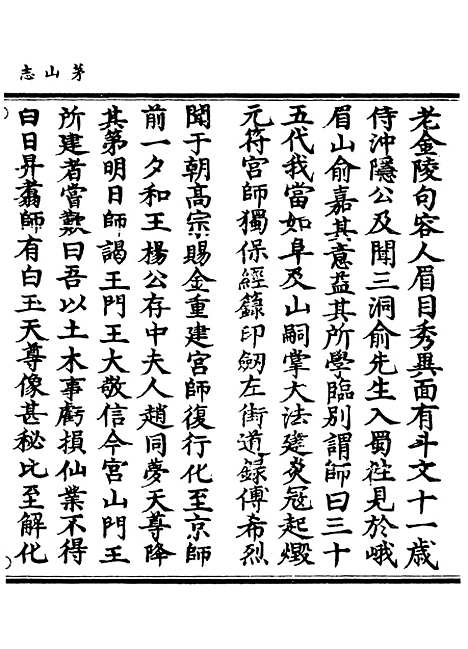 茅山志
老金陵句容人眉目秀異面有斗文十一歲
侍沖隱公及聞三洞俞先生入蜀徃見於峨
眉山俞嘉其意益其所學臨別謂師曰三十
五代我當如阜及山嗣掌大法建炎冦起燬
元符宮師獨保經籙印劒左街道錄傅希烈
聞于朝高宗賜金重建宮師復行化至京師
前一夕和王楊公存中夫人趙同夢天尊降
其第明日師謁王門王大敬信今宮山門王
所建者嘗歎曰吾以土木事虧損仙業不得
白日昇翥師有白玉天尊像甚秘比至解化